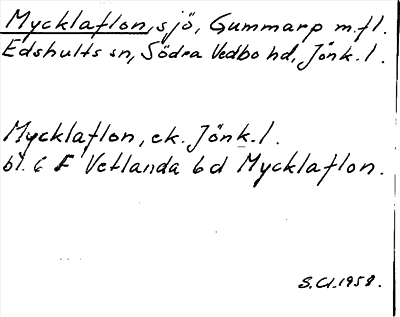 Mycklaflon, sjö, Gummarp m.fl.
Edshults sn, Södra Vedbo hd, Jönk. l.
Mycklaflon, ek. Jönk. l.
bl. 6 F Vetlanda 6 d Mycklaflon.
S.Cl. 1958.